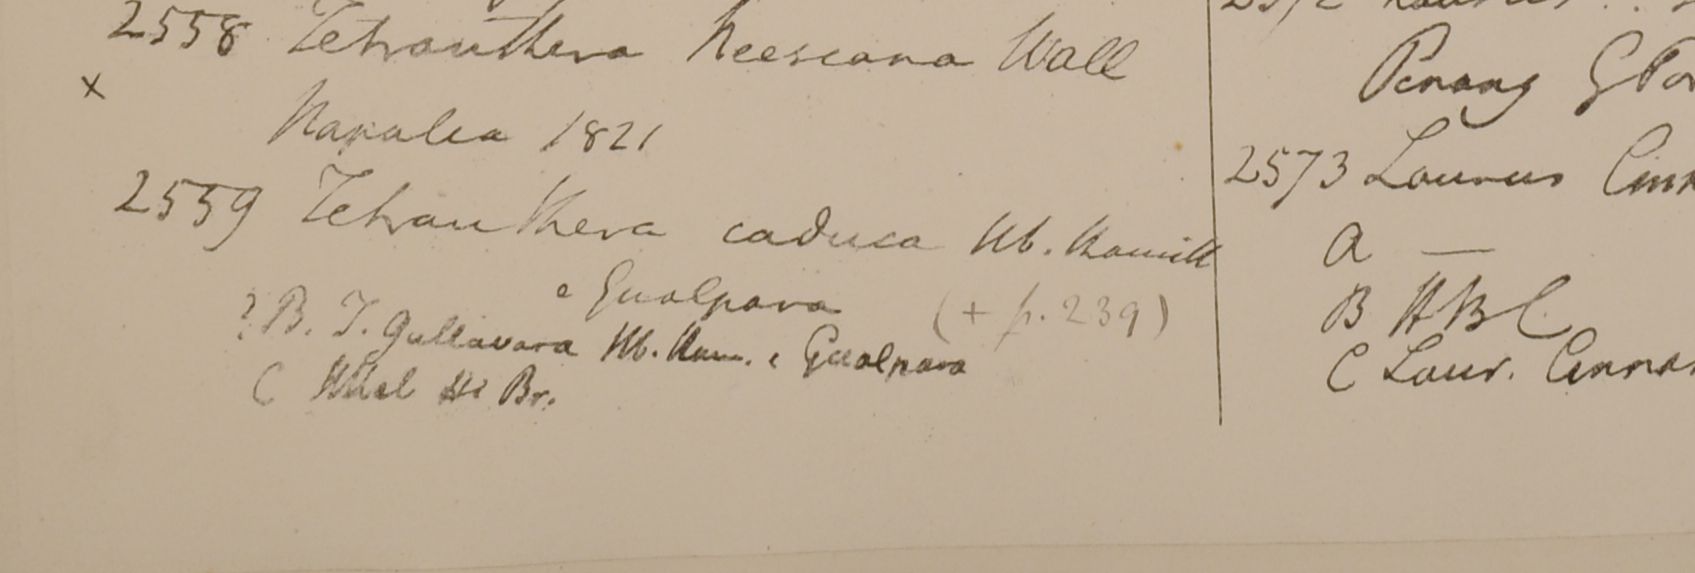 2558 Tetranthera Neesiana Wall
x
Napalia 1821
2559 Tetranthera caduca Hb. Hamilt
e Gualpara (+ p. 239)
? B. T. gullavara Hb. Ham. e Gualpara
C Br.
Penang G Por
2573 Laurus Cinn
a —
B HBC.
C Laur. Cinnam